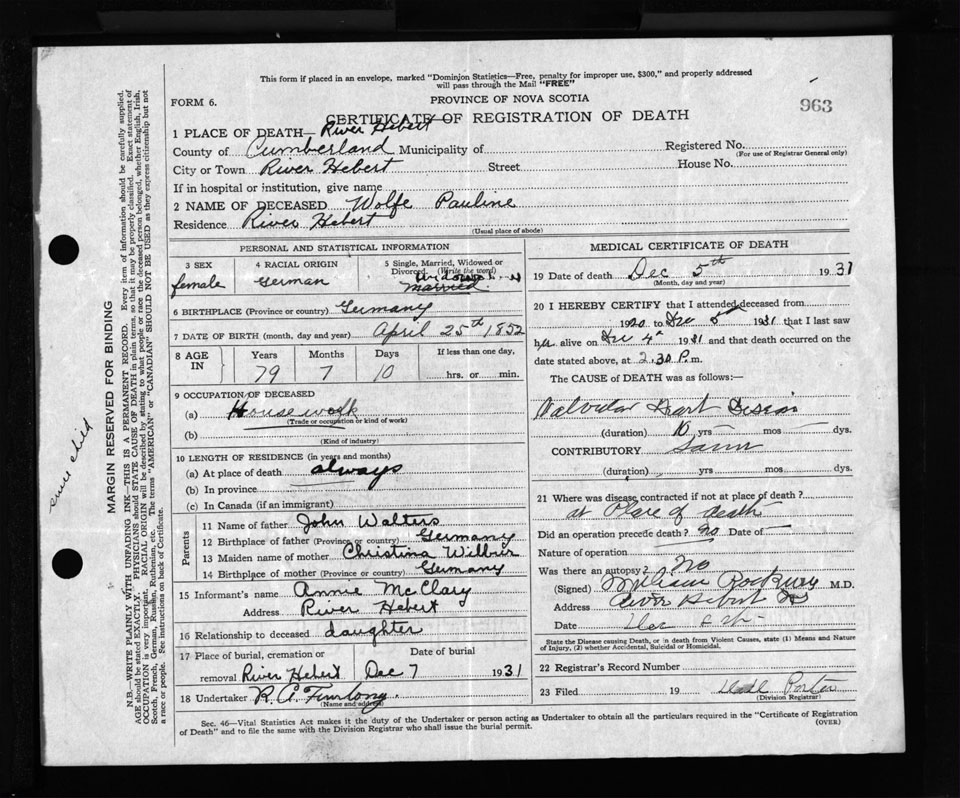 This form if placed in an envelope, marked "Dominion Statistics—Free, penalty for improper use, $300," and properly addressed
will pass through the Mail "FREE"
FORM 6.
PROVINCE OF NOVA SCOTIA
963
CERTIFICATE OF REGISTRATION OF DEATH
1 PLACE OF DEATH— River Hebert
County of Cumberland Municipality of Registered No.
(For use of Registrar General only)
City or Town River Hebert Street House No.
If in hospital or institution, give name
2 NAME OF DECEASED Wolfe Pauline
Residence River Hebert
(Usual place of abode)
PERSONAL AND STATISTICAL INFORMATION
3 SEX 4 RACIAL ORIGIN 5 Single, Married, Widowed or
Divorced (Write the word)
female German married
6 BIRTHPLACE (Province or country) Germany
7 DATE OF BIRTH (month, day and year) April 25th 1852
8 AGE IN Years Months Days If less than one day,
79 7 10 hrs. or min.
9 OCCUPATION OF DECEASED
(a) Housework
(Trade or occupation or kind of work)
(b)
(Kind of industry)
10 LENGTH OF RESIDENCE (in years and months)
(a) At place of death always
(b) In province
(c) In Canada (if an immigrant)
Parents
11 Name of father John Walters
12 Birthplace of father (Province or country) Germany
13 Maiden name of mother Christina
14 Birthplace of mother (Province or country) Germany
15 Informant's name Annie McClary
Address River Hebert
16 Relationship to deceased daughter
17 Place of burial, cremation or Date of burial
removal River Hebert Dec 7 1931
18 Undertaker R. A. Furlong
(Name and address)
MEDICAL CERTIFICATE OF DEATH
19 Date of death Dec 5th 1931
(Month, day and year)
20 I HEREBY CERTIFY that I attended deceased from
1920 to Dec 5 1931 that I last saw
her alive on Dec 4th 1931 and that death occurred on the
date stated above, at 2.30 P.m.
The CAUSE of DEATH was as follows:
Valvular Heart Disease
(duration) 10 yrs mos dys.
CONTRIBUTORY Same
(duration) yrs. mos. dys.
21 Where was disease contracted if not at place of death?
at Place of death
Did an operation precede death? no Date of
Nature of operation
Was there an autopsy? No
(Signed) William Rockwell M.D.
Address River Hebert NS
Date Dec
State the Disease causing Death, or in death from Violent Causes, state (1) Means and Nature
of Injury, (2) whether Accidental, Suicidal or Homicidal.
22 Registrar's Record Number
23 Filed 19 Porter
(Division Registrar)
Sec. 46—Vital Statistics Act makes it the duty of the Undertaker or person acting as Undertaker to obtain all the particulars required in the "Certificate of Registration
of Death" and to file the same with the Division Registrar who shall issue the burial permit.
(OVER)
MARGIN RESERVED FOR BINDING
N.B.—WRITE PLAINLY WITH UNFADING INK—THIS IS A PERMANENT RECORD. Every item of information should be carefully supplied.
AGE should be stated EXACTLY. PHYSICIANS should STATE CAUSE OF DEATH in plain terms, so that it may be properly classified. Exact statement of
OCCUPATION is very important. RACIAL ORIGIN will be described by stating to what people or race the deceased person belonged, whether English, Irish,
Scotch, French, German, Russian, Ruthenian, etc. The terms "AMERICAN" or "CANADIAN" SHOULD NOT BE USED as they express citizenship but not
a race or people. See instructions on back of Certificate.
child